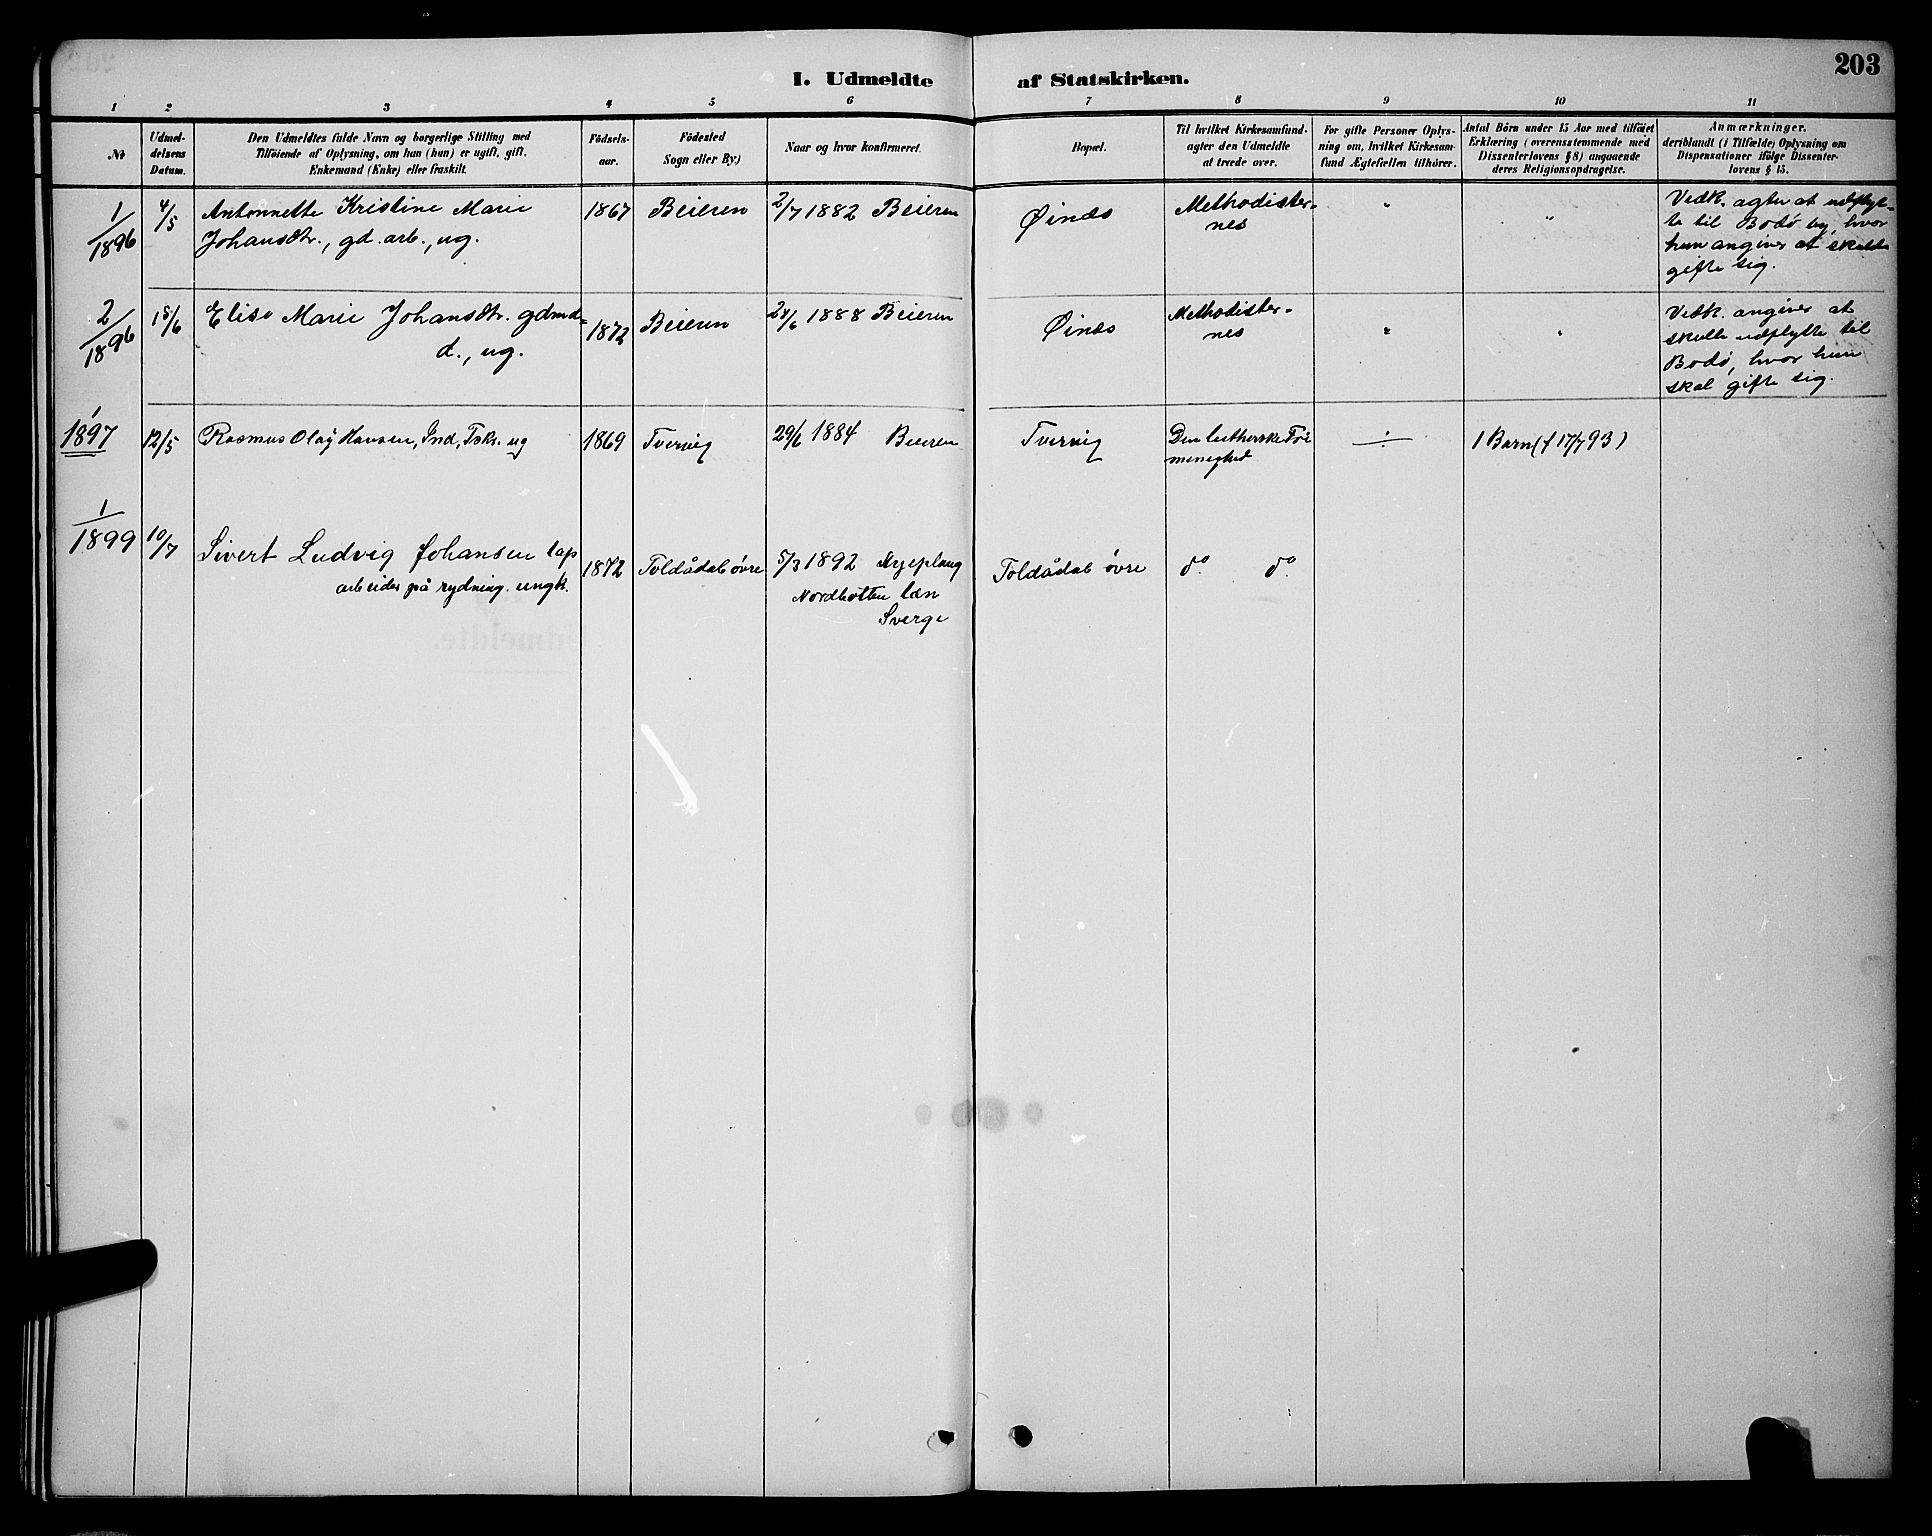 I. Udmeldte af Statskirken.
203
1 2 3 4 5 6 7 8 9 10 11
No
Udmel-
delsens
Datum.
Den Udmeldtes fulde Navn og borgerlige Stilling med
Tilföiende af Oplysning, om han (hun) er ugift, gift,
Enkemand (Enke) eller fraskilt.
Födsels-
aar.
Födested
Sogn eller By.)
Naar og hvor konfirmeret.
Bopæl.
Til hvilket Kirkesamfund
agter den Udmeldte
at træde over.
For gifte Personer Oplys-
ning om, hvilket Kirkesam-
fund Ægtefællen tilhører.
Antal Börn under 15 Aar med tilföiet
Erklæring (overensstemmende med
Dissenterlovens § 8) angaaende
deres Religionsopdragelse.
Anmærkninger,
deriblandt (i Tilfælde) Oplysning om
Dispensationer ifölge Dissenter-
lovens § 15.
1/1896
4/5
Antonnette Kristine Marie
Johansdtr., gd. arb., ug.
1867
Beieren
2/7 1882 Beieren
Øinæs
Methodister-
nes
"
"
Vedk. agter at udflyt-
te til Bodø by, hvor
hun angiver at skulde
gifte sig.
2/1896
18/6
Elise Marie Johansdtr. gdmd-
d., ug.
1872
Beieren
24/6 1888 Beieren
Øinæs
Methodister-
nes
"
"
Vedk. angiver at
skulle udflytte til
Bodø, hvor hun
skal gifte sig.
1
1897
12/5
Rasmus Olaj Hansen, Ind, Fskr. ug
1869
Tvervig
29/6 1884 Beieren
Tvervig
Den lutherske Fri
menighed
÷
1 Barn (f 17/7 93)
1
1899
10/7
Sivert Ludvig Johansen lap
arbeider på rydning. ungk.
1872
Toldådal øvre
5/3 1892
Nordbotten læn
Sverge
Toldådal øvre
do do
Udmeldte.